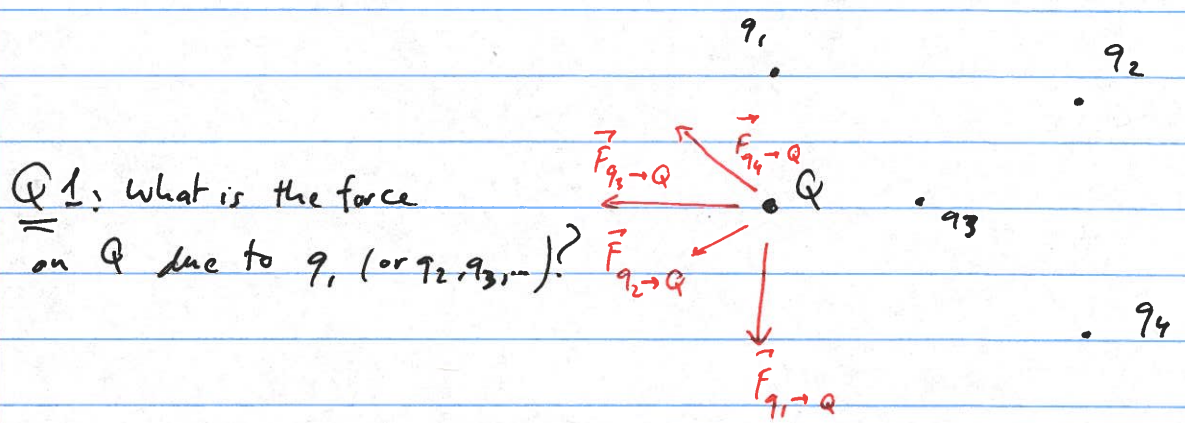 q₁
q₂
F⃗q₃→Q
F⃗q₄→Q
Q
Q1: What is the force
q₃
on Q due to q₁ (or q₂,q₃,...)?
F⃗q₂→Q
q₄
F⃗q₁→Q